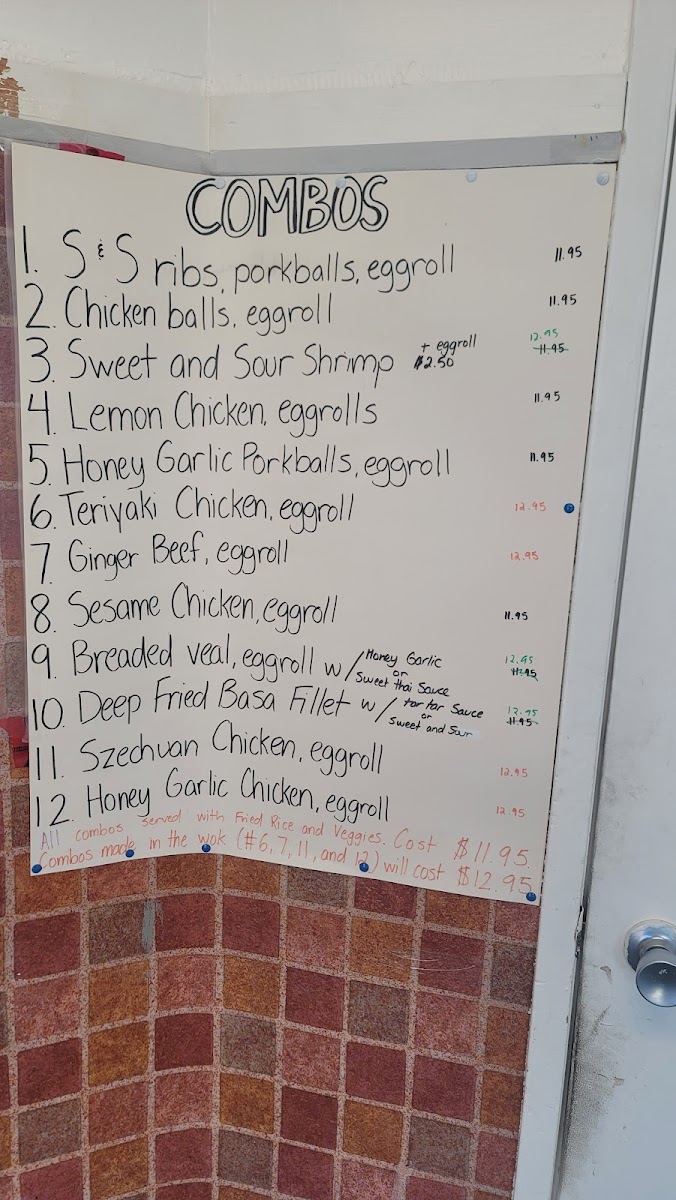 COMBOS
1. S & S ribs, porkballs, eggroll 11.95
2. Chicken balls, eggroll 11.95
3. Sweet and Sour Shrimp + eggroll $2.50 12.95 11.95
4. Lemon Chicken, eggrolls 11.95
5. Honey Garlic Porkballs, eggroll 11.95
6. Teriyaki Chicken, eggroll 12.95
7. Ginger Beef, eggroll 12.95
8. Sesame Chicken, eggroll 11.95
9. Breaded veal, eggroll w/ Honey Garlic or Sweet thai Sauce 12.95 11.95
10. Deep Fried Basa Fillet w/ tar tar Sauce or Sweet and Sour 12.95 11.95
11. Szechuan Chicken, eggroll 12.95
12. Honey Garlic Chicken, eggroll 12.95
All combos served with Fried Rice and Veggies. Cost $11.95.
Combos made in the wok (#6, 7, 11, and 12) will cost $12.95